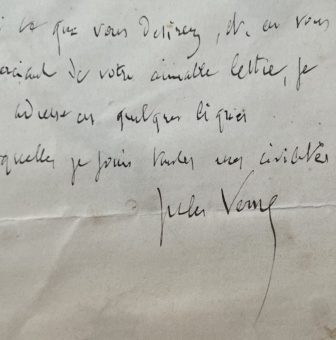 ce que vous désirez, et en vous
remerciant de votre aimable lettre, je
adresse ces quelques lignes
quelles je joins toutes mes civilités
Jules Verne